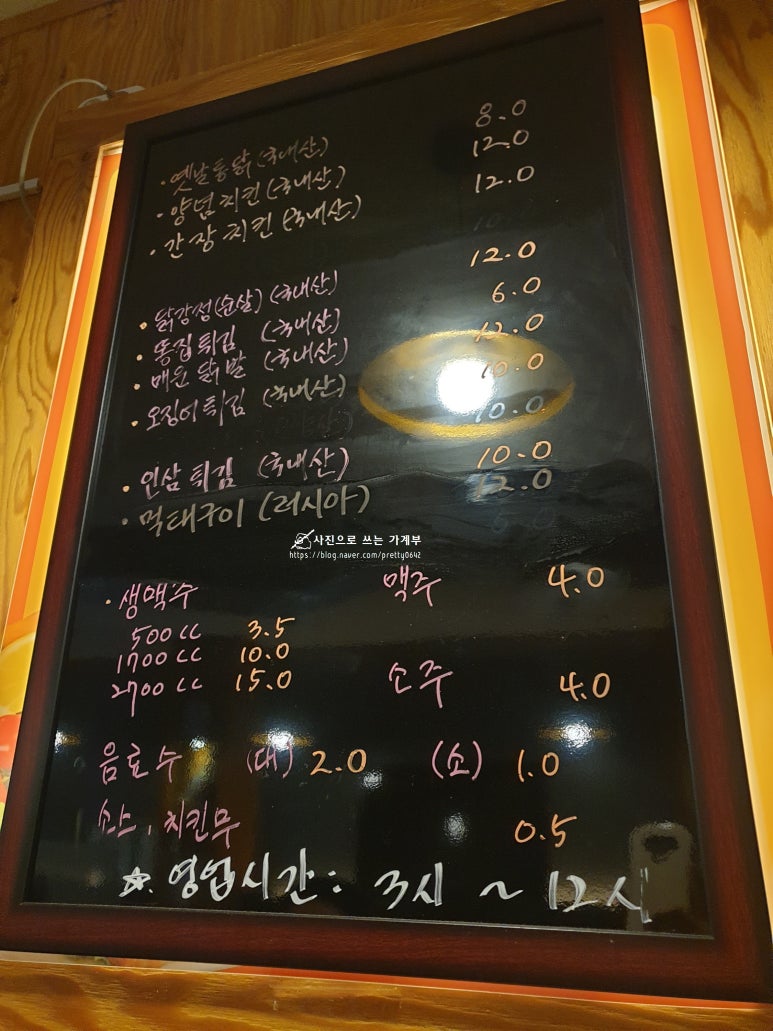 · 옛날통닭 (국내산) 8.0
· 양념치킨 (국내산) 12.0
· 간장치킨 (국내산) 12.0
· 닭강정(순살) (국내산) 12.0
· 똥집튀김 (국내산) 6.0
· 매운닭발 (국내산) 12.0
· 오징어튀김 (국내산) 10.0
10.0
· 인삼튀김 (국내산) 10.0
· 먹태구이 (러시아) 12.0
사진으로 쓰는 가계부
https://blog.naver.com/pretty0642
· 생맥수 맥주 4.0
500cc 3.5
1700cc 10.0
2700cc 15.0
소주 4.0
음료수 (대) 2.0 (소) 1.0
소스, 치킨무 0.5
☆. 영업시간: 3시 ~ 12시